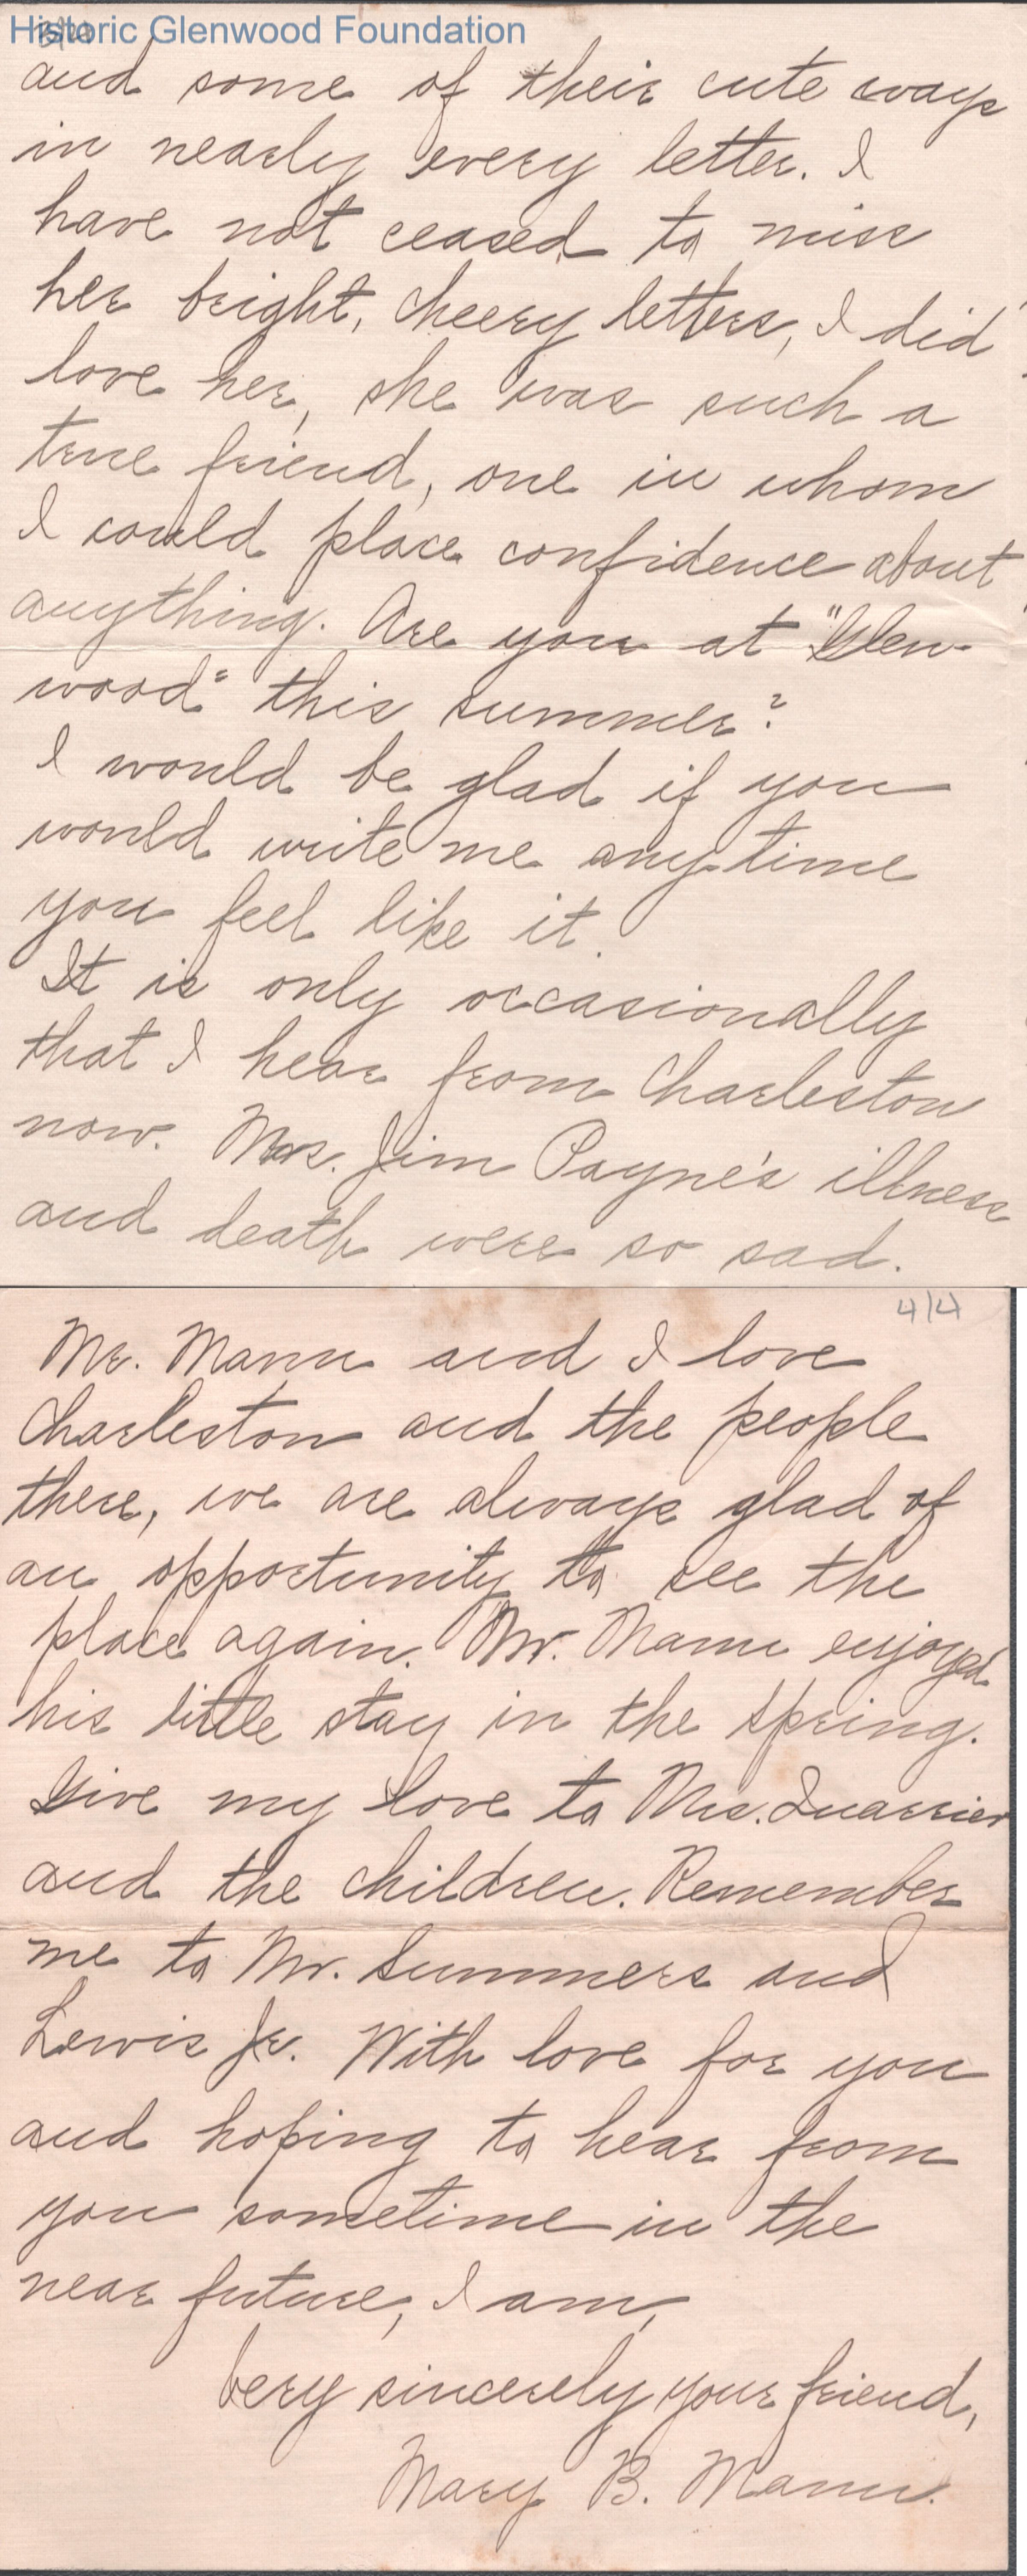 Historic Glenwood Foundation
and some of their cute ways
in nearly every letter. I
have not ceased to miss
her bright, cheery letters, I did
love her, she was such a
true friend, one in whom
I could place confidence about
anything. Are you at "Glen-
wood" this summer?
I would be glad if you
would write me anytime
you feel like it.
It is only occasionally
that I hear from Charleston
now. Mrs. Jim Payne's illness
and death were so sad.
4/4
Mr. Mann and I love
Charleston and the people
there, we are always glad of
an opportunity to see the
place again. Mr. Mann enjoyed
his little stay in the Spring.
Give my love to Mrs. Quarrier
and the children. Remember
me to Mr. Summers and
Lewis Jr. With love for you
and hoping to hear from
you sometime in the
near future, I am,
Very sincerely your friend,
Mary B. Mann.